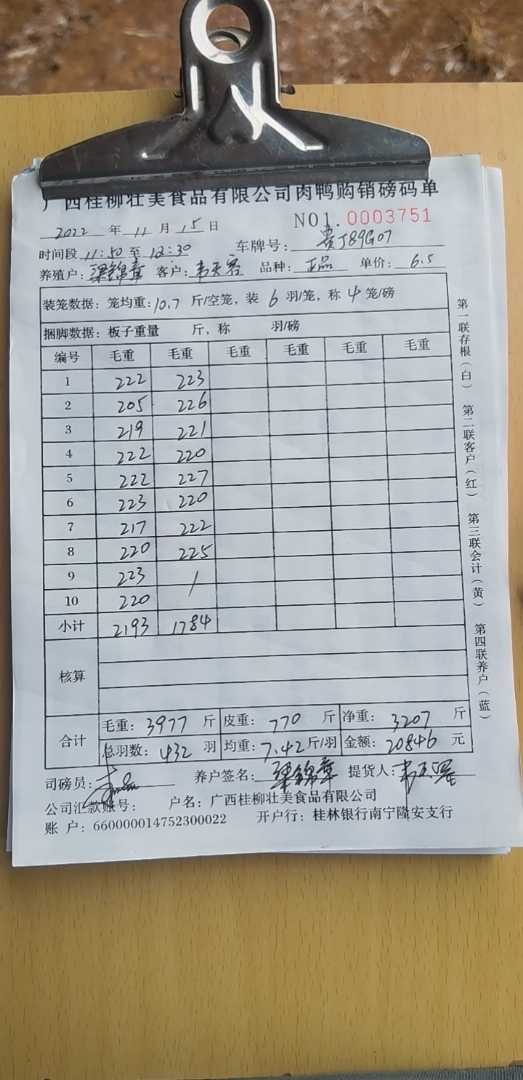 广西桂柳壮美食品有限公司肉鸭购销磅码单
2022 年 11 月 15 日 NO1. 0003751
时间段 11:50 至 12:30 车牌号: 贵J89G07
养殖户: 梁锦章 客户: 韦天容 品种: 正品 单价: 6.5
装笼数据: 笼均重: 10.7 斤/空笼, 装 6 羽/笼, 称 4 笼/磅
捆脚数据: 板子重量 斤, 称 羽/磅
编号 毛重 毛重 毛重 毛重 毛重 毛重
1 222 223
2 205 226
3 219 221
4 222 220
5 222 227
6 223 220
7 217 222
8 220 225
9 223 /
10 220
小计 2193 1784
核算
合计 毛重: 3977 斤 皮重: 770 斤 净重: 3207 斤
总羽数: 432 羽 均重: 7.42 斤/羽 金额: 20846 元
司磅员: 养户签名: 梁锦章 提货人: 韦天容
公司汇款账号: 户名: 广西桂柳壮美食品有限公司
账 户: 660000014752300022 开户行: 桂林银行南宁隆安支行
第一联存根(白) 第二联客户(红) 第三联会计(黄) 第四联养户(蓝)